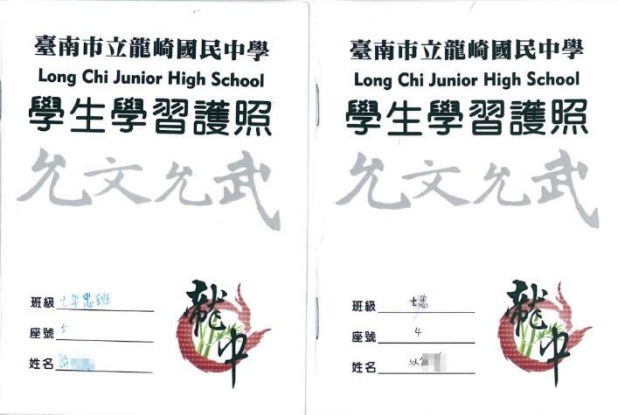 臺南市立龍崎國民中學
Long Chi Junior High School
學生學習護照
允文允武
班級 七年思班
座號 5
姓名
龍中
臺南市立龍崎國民中學
Long Chi Junior High School
學生學習護照
允文允武
班級 七思
座號 4
姓名
龍中